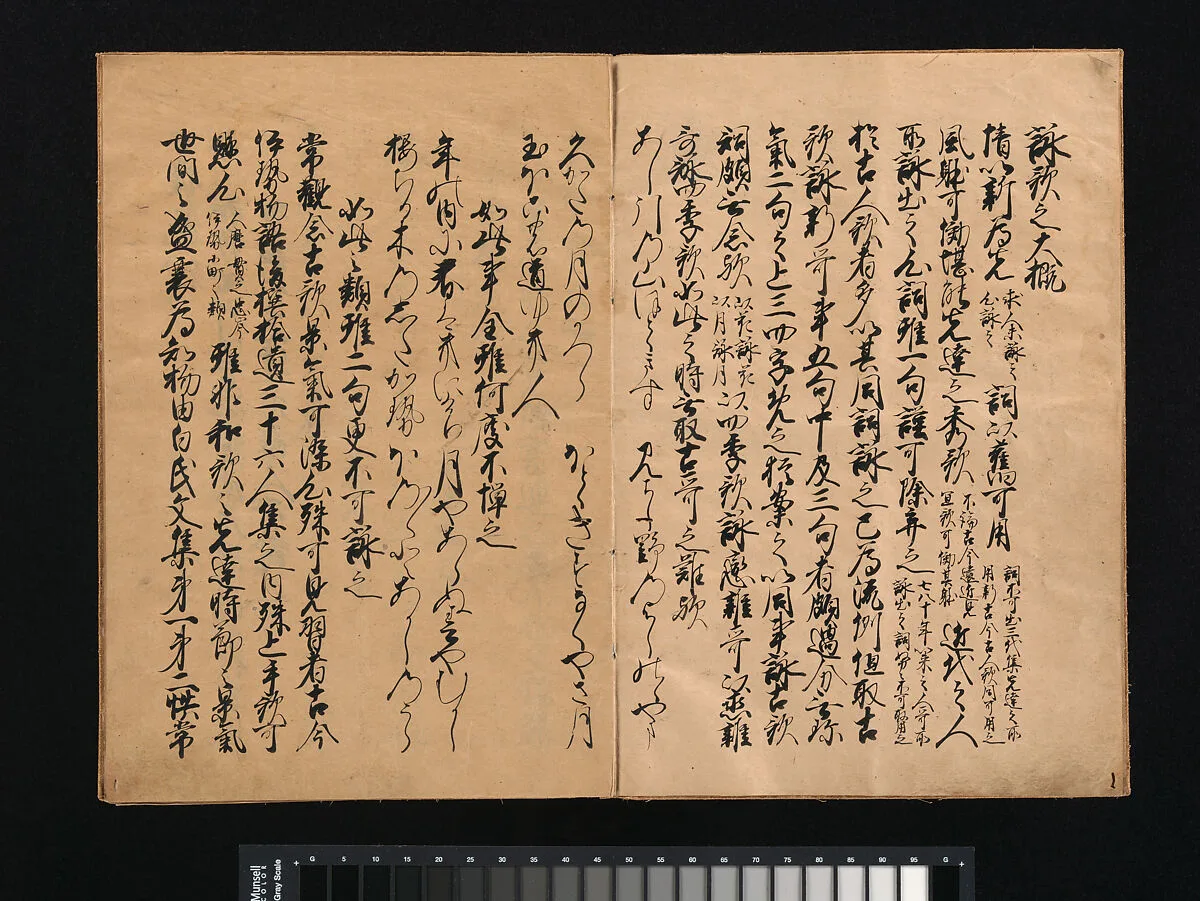 詠歌之大概
情以新為先 求人未詠之心詠之 詞以舊可用 詞不可出三代集先達之所用新古今古人歌同可用之
風躰可効堪能先達之秀歌 不論古今遠近見宜歌可効其躰 近代之人
所詠出之心詞雖一句謹可除弃之 七八十年以来之人哥所詠出之詞努々不可取用之
於古人歌者多以其同詞詠之已為流例但取古
歌詠新哥事五句中及三句者頗過分無珍
氣二句之上三四字免之猶案之以同事詠古歌
詞頗無念歟 以花詠花以月詠月 以四季歌詠戀雜哥以戀雜
哥詠四季歌如此之時無取古哥之難歟
あし引の山ほとゝきす みよし野のよしのゝやま
久かたの月のかつら ほとゝきすなくやさ月
玉ほこの道ゆき人
如此事全雖何度不憚之
年の内に春はきにけり 月やあらぬ春やむかし
桜ちる木のした風 ほの〳〵とあかしのうら
如此之類雖二句更不可詠之
常觀念古歌景氣可染心殊可見習者古今
伊勢物語後撰拾遺三十六人集之内殊上手歌可
懸心 人麿貫之忠岑伊勢小町之類 雖非和歌之先達時節之景氣
世間之盛衰為知物由白氏文集第一第二帙常
Munsell
COLOR
Gray Scale
G 5 10 15 20 25 30 35 40 45 50 55 60 65 70 75 80 85 90 95 G